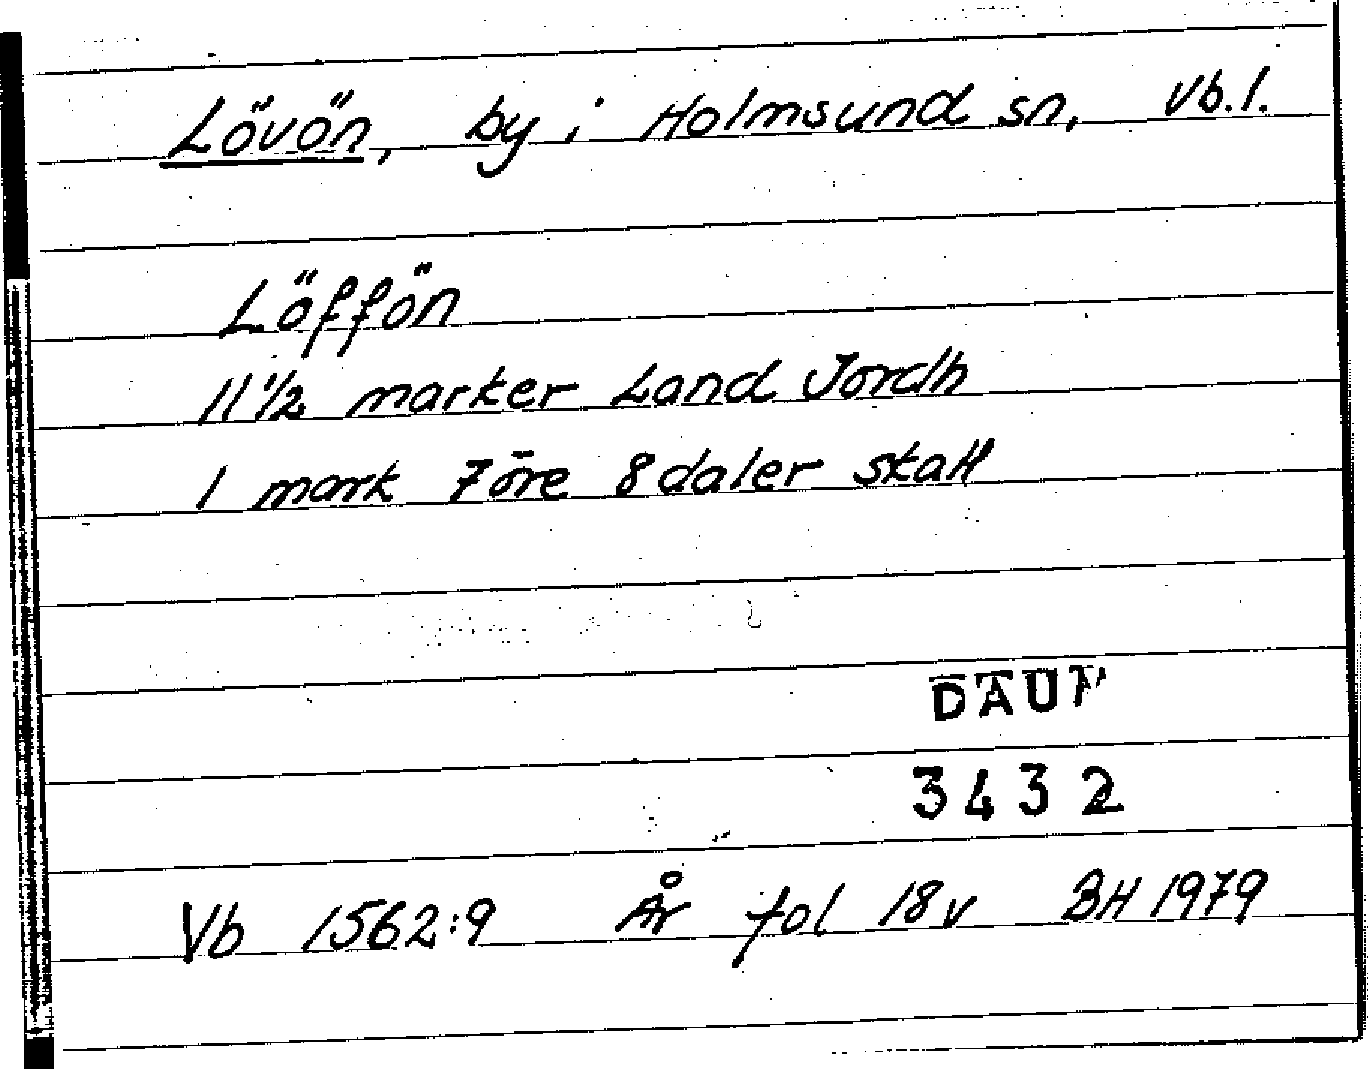 Lövön, by i Holmsund sn, Vb. l.
Löffön
11 1/2 marker Land Jordh
1 mark 7 öre 8 daler skatt
DAUM
3432
Vb 1562:9 År fol 18v BH 1979